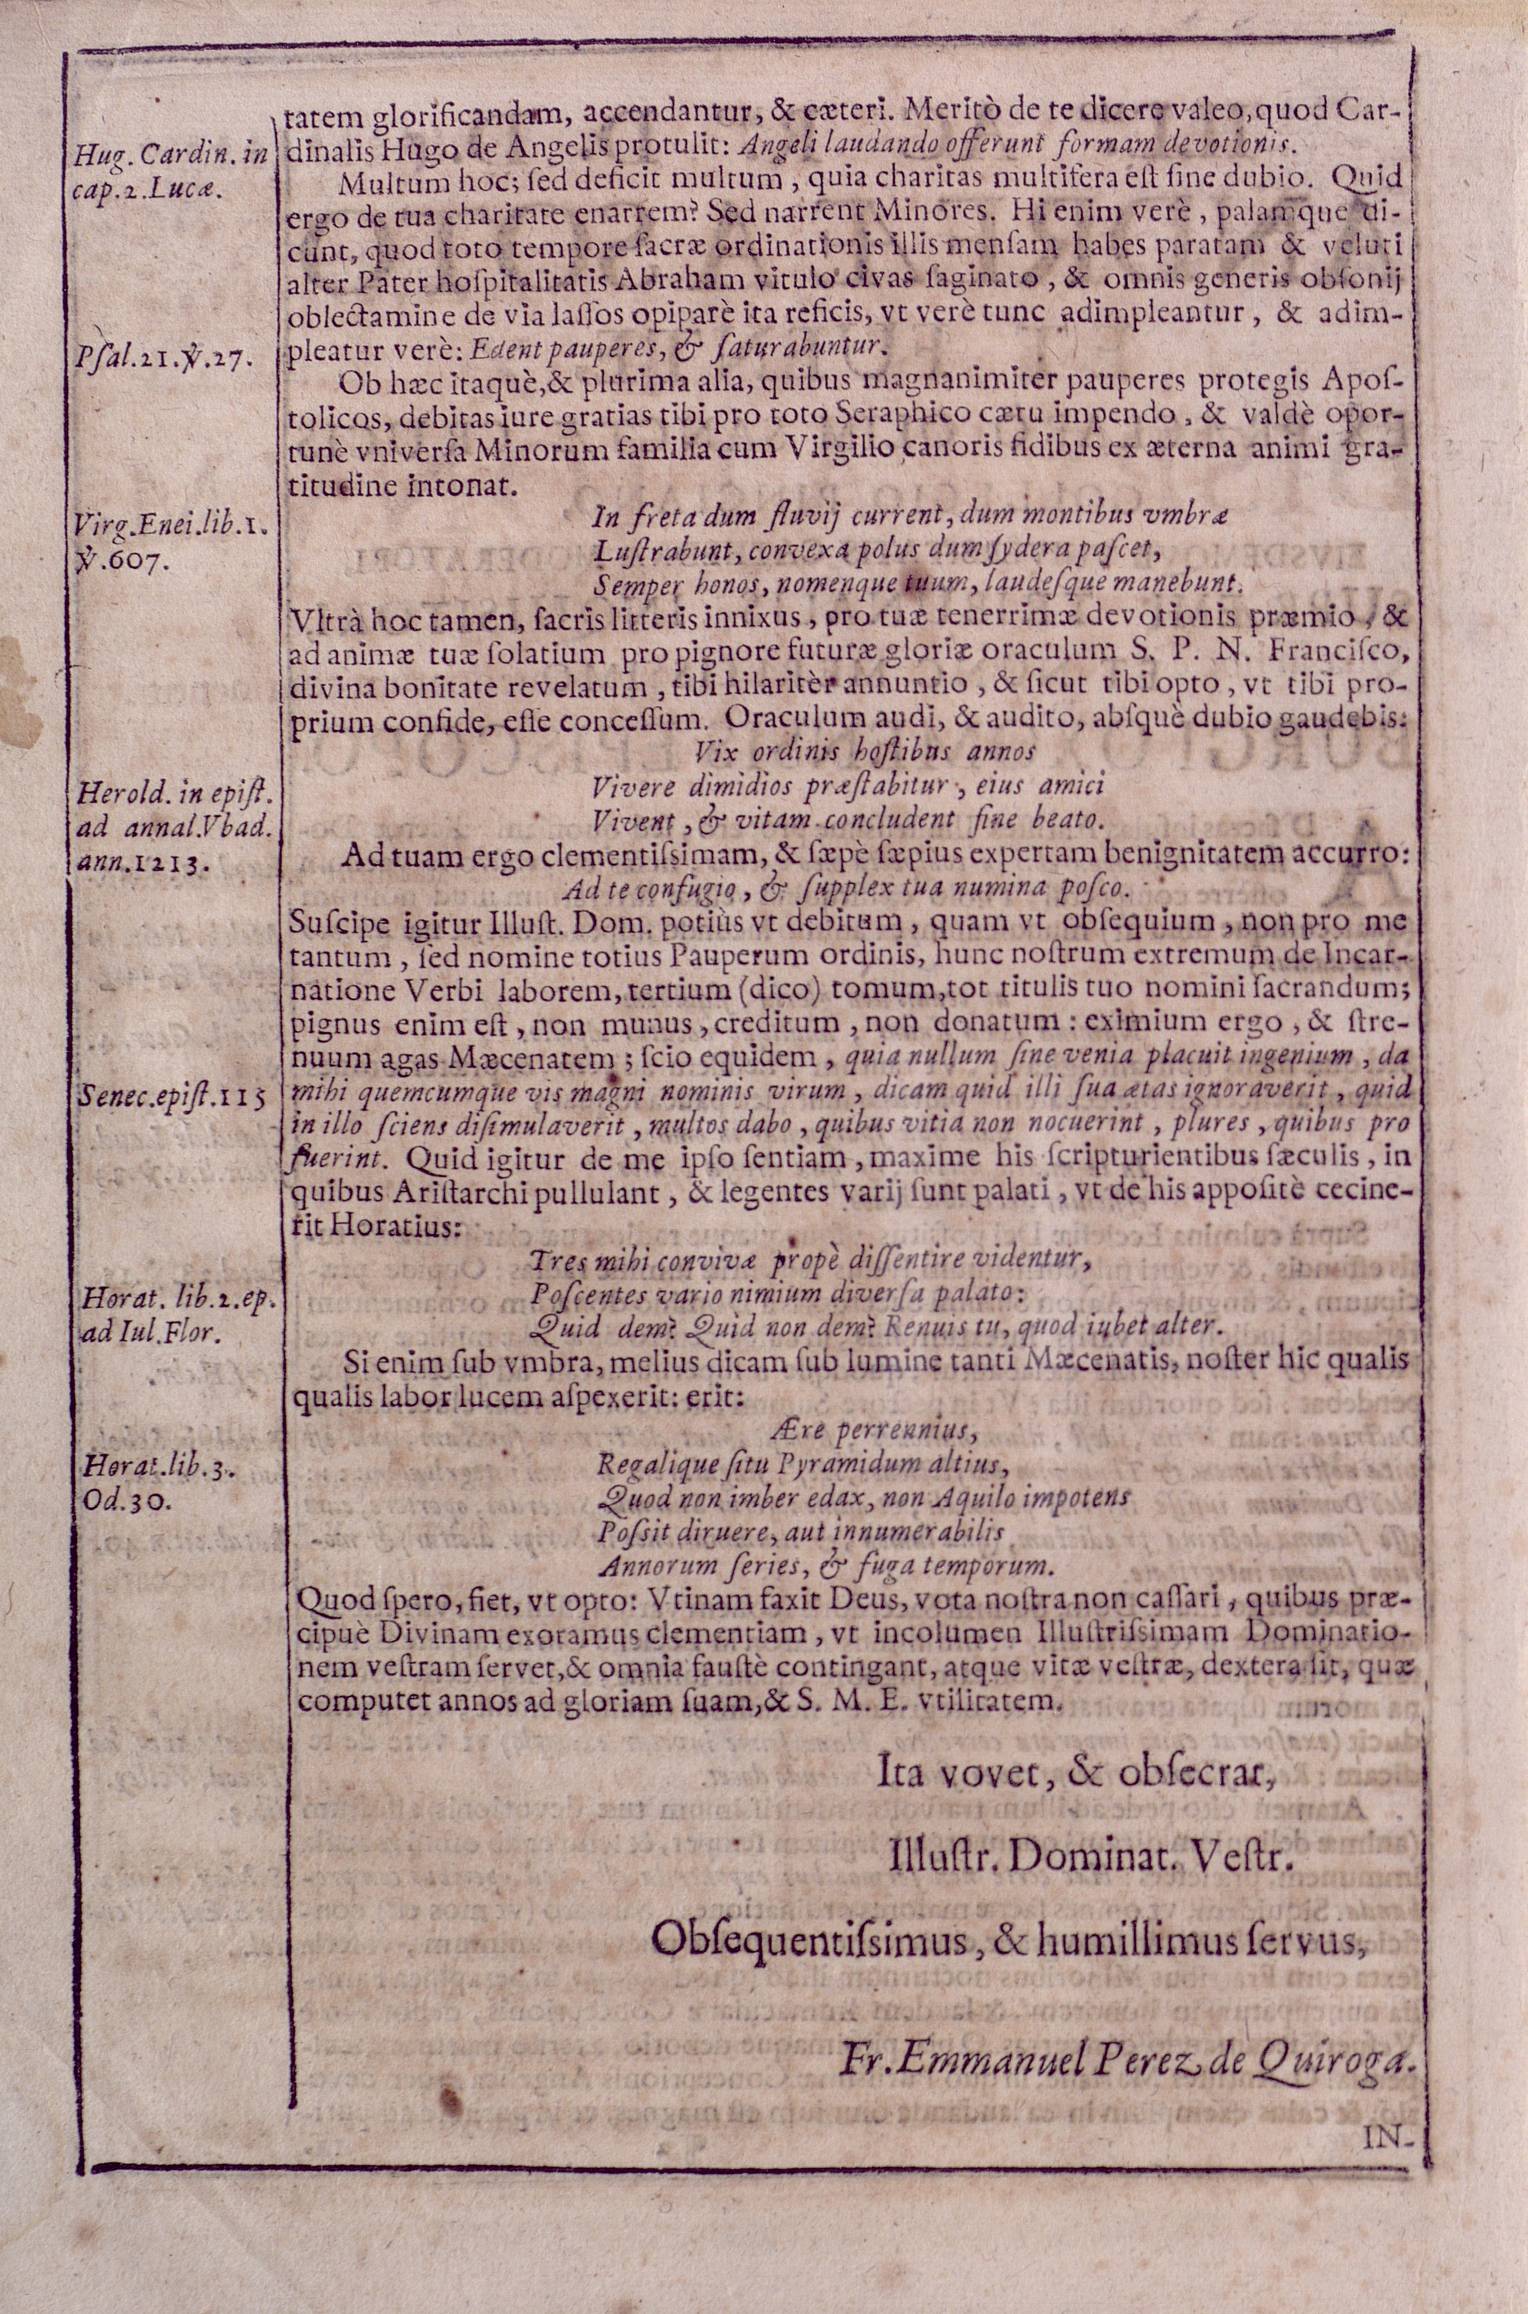 tatem glorificandam, accendantur, & cæteri. Meritò de te dicere valeo, quod Car-
Hug. Cardin. in
dinalis Hugo de Angelis protulit: Angeli laudando offerunt formam devotionis.
cap. 2. Lucæ.
Multum hoc; sed deficit multum, quia charitas multifera est sine dubio. Quid
ergo de tua charitate enarrem? Sed narrent Minores. Hi enim verè, palamque di-
cunt, quod toto tempore sacræ ordinationis illis mensam habes paratam & veluti
alter Pater hospitalitatis Abraham vitulo civas saginato, & omnis generis obsonij
oblectamine de via lassos opiparè ita reficis, vt verè tunc adimpleantur, & adim-
Psal. 21. ℣. 27.
pleatur verè: Edent pauperes, & saturabuntur.
Ob hæc itaquè, & plurima alia, quibus magnanimiter pauperes protegis Apos-
tolicos, debitas iure gratias tibi pro toto Seraphico cætu impendo, & valdè opor-
tunè vniversa Minorum familia cum Virgilio canoris fidibus ex æterna animi gra-
titudine intonat.
Virg. Enei. lib. 1.
℣. 607.
In freta dum fluvij current, dum montibus vmbræ
Lustrabunt, convexa polus dum sydera pascet,
Semper honos, nomenque tuum, laudesque manebunt.
Vltrà hoc tamen, sacris litteris innixus, pro tuæ tenerrimæ devotionis præmio, &
ad animæ tuæ solatium pro pignore futuræ gloriæ oraculum S. P. N. Francisco,
divina bonitate revelatum, tibi hilaritèr annuntio, & sicut tibi opto, vt tibi pro-
prium confide, esse concessum. Oraculum audi, & audito, absquè dubio gaudebis:
Herold. in epist.
ad annal. Vbad.
ann. 1213.
Vix ordinis hostibus annos
Vivere dimidios præstabitur, eius amici
Vivent, & vitam concludent fine beato.
Ad tuam ergo clementissimam, & sæpè sæpius expertam benignitatem accurro:
Ad te confugio, & supplex tua numina posco.
Suscipe igitur Illust. Dom. potiùs vt debitum, quam vt obsequium, non pro me
tantum, sed nomine totius Pauperum ordinis, hunc nostrum extremum de Incar-
natione Verbi laborem, tertium (dico) tomum, tot titulis tuo nomini sacrandum;
pignus enim est, non munus, creditum, non donatum: eximium ergo, & stre-
nuum agas Mæcenatem; scio equidem, quia nullum sine venia placuit ingenium, da
Senec. epist. 115
mihi quemcumque vis magni nominis virum, dicam quid illi sua ætas ignoraverit, quid
in illo sciens disimulaverit, multos dabo, quibus vitia non nocuerint, plures, quibus pro
fuerint. Quid igitur de me ipso sentiam, maxime his scripturientibus sæculis, in
quibus Aristarchi pullulant, & legentes varij sunt palati, vt de his appositè cecine-
rit Horatius:
Horat. lib. 2. ep.
ad Iul. Flor.
Tres mihi convivæ propè dissentire videntur,
Poscentes vario nimium diversa palato:
Quid dem? Quid non dem? Renuis tu, quod iubet alter.
Si enim sub vmbra, melius dicam sub lumine tanti Mæcenatis, noster hic qualis
qualis labor lucem aspexerit: erit:
Horat. lib. 3.
Od. 30.
Ære perrennius,
Regalique situ Pyramidum altius,
Quod non imber edax, non Aquilo impotens
Possit diruere, aut innumerabilis
Annorum series, & fuga temporum.
Quod spero, fiet, vt opto: Vtinam faxit Deus, vota nostra non cassari, quibus præ-
cipuè Divinam exoramus clementiam, vt incolumen Illustrissimam Dominatio-
nem vestram servet, & omnia faustè contingant, atque vitæ vestræ, dextera sit, quæ
computet annos ad gloriam suam, & S. M. E. vtilitatem.
Ita vovet, & obsecrat,
Illustr. Dominat. Vestr.
Obsequentissimus, & humillimus servus,
Fr. Emmanuel Perez de Quiroga.
IN-